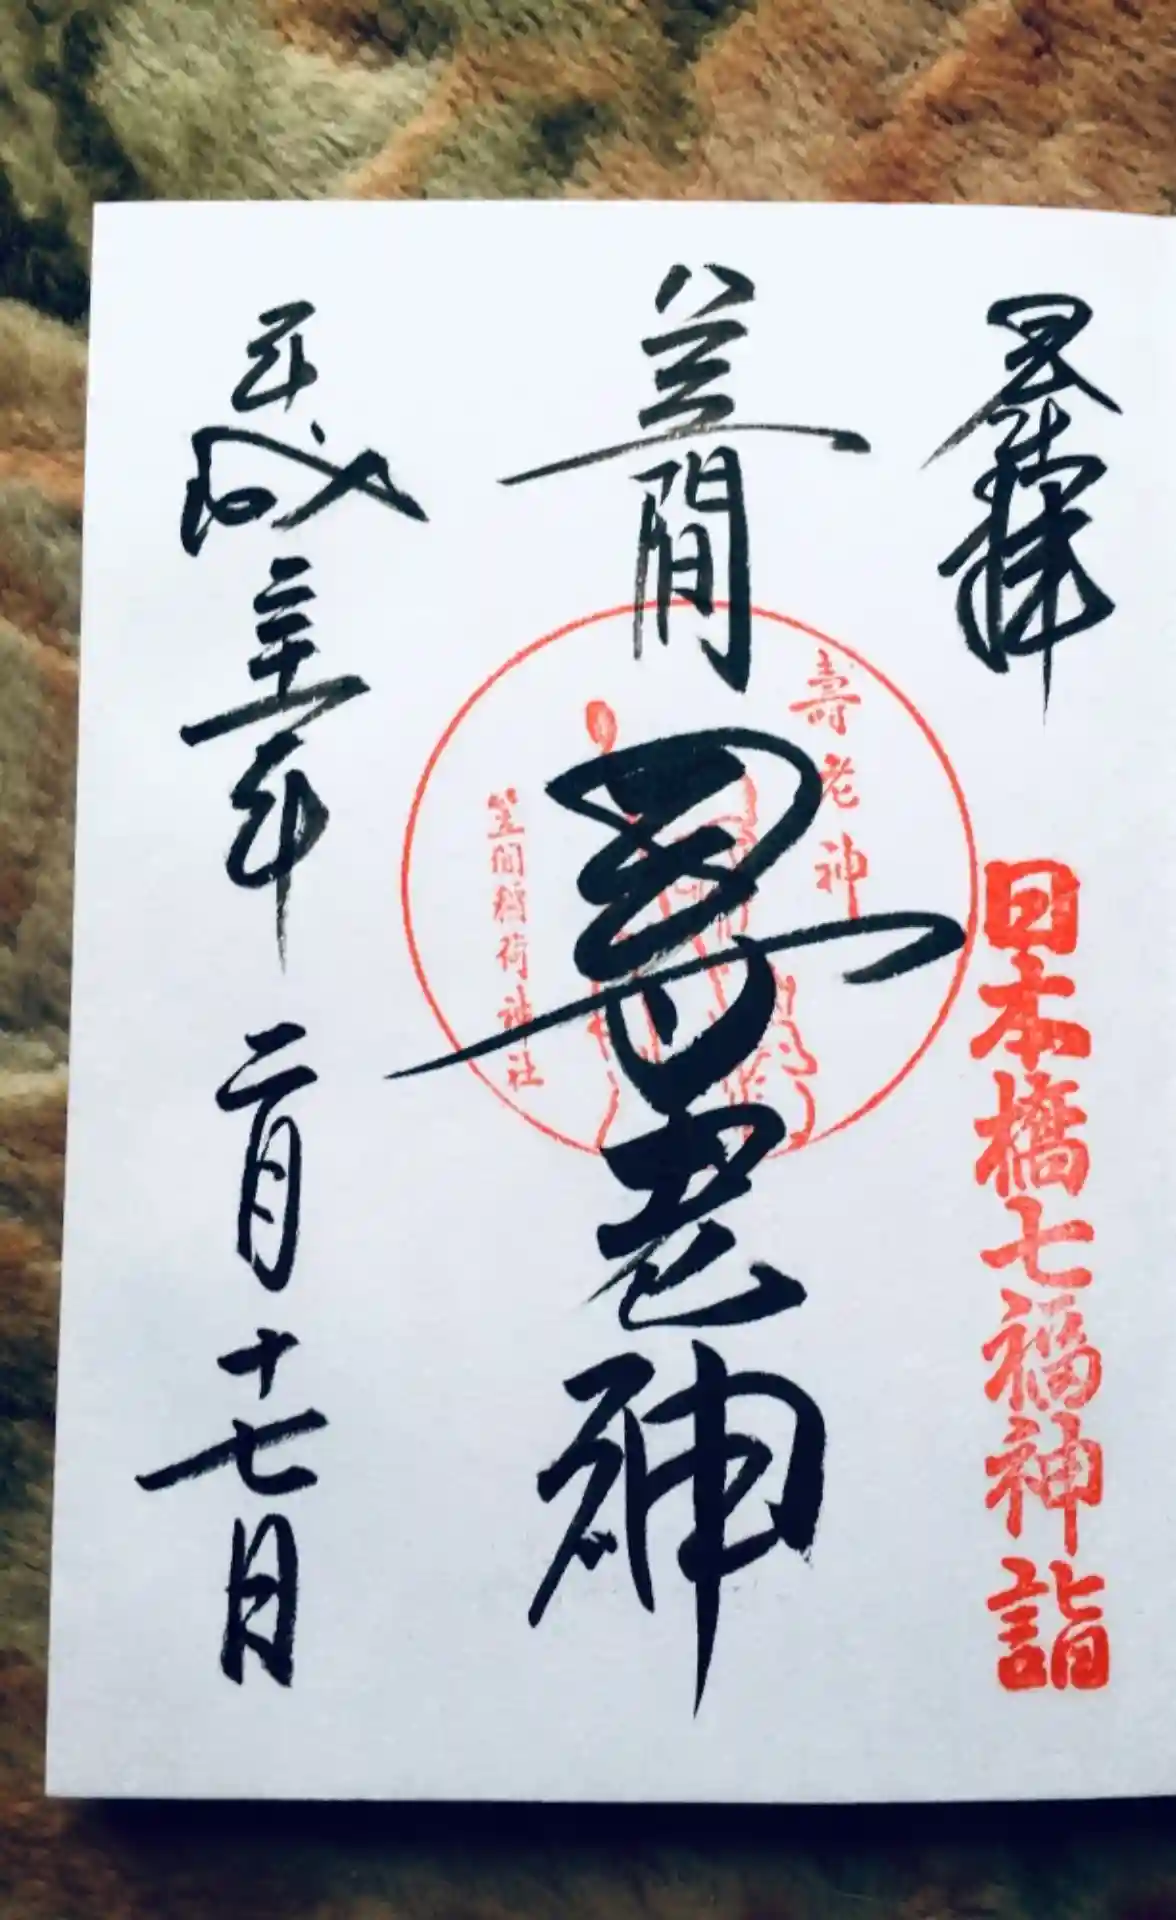 奉拝
日本橋七福神詣
笠間
壽老神
壽老神
笠間稲荷神社
平成三十一年 二月十七日